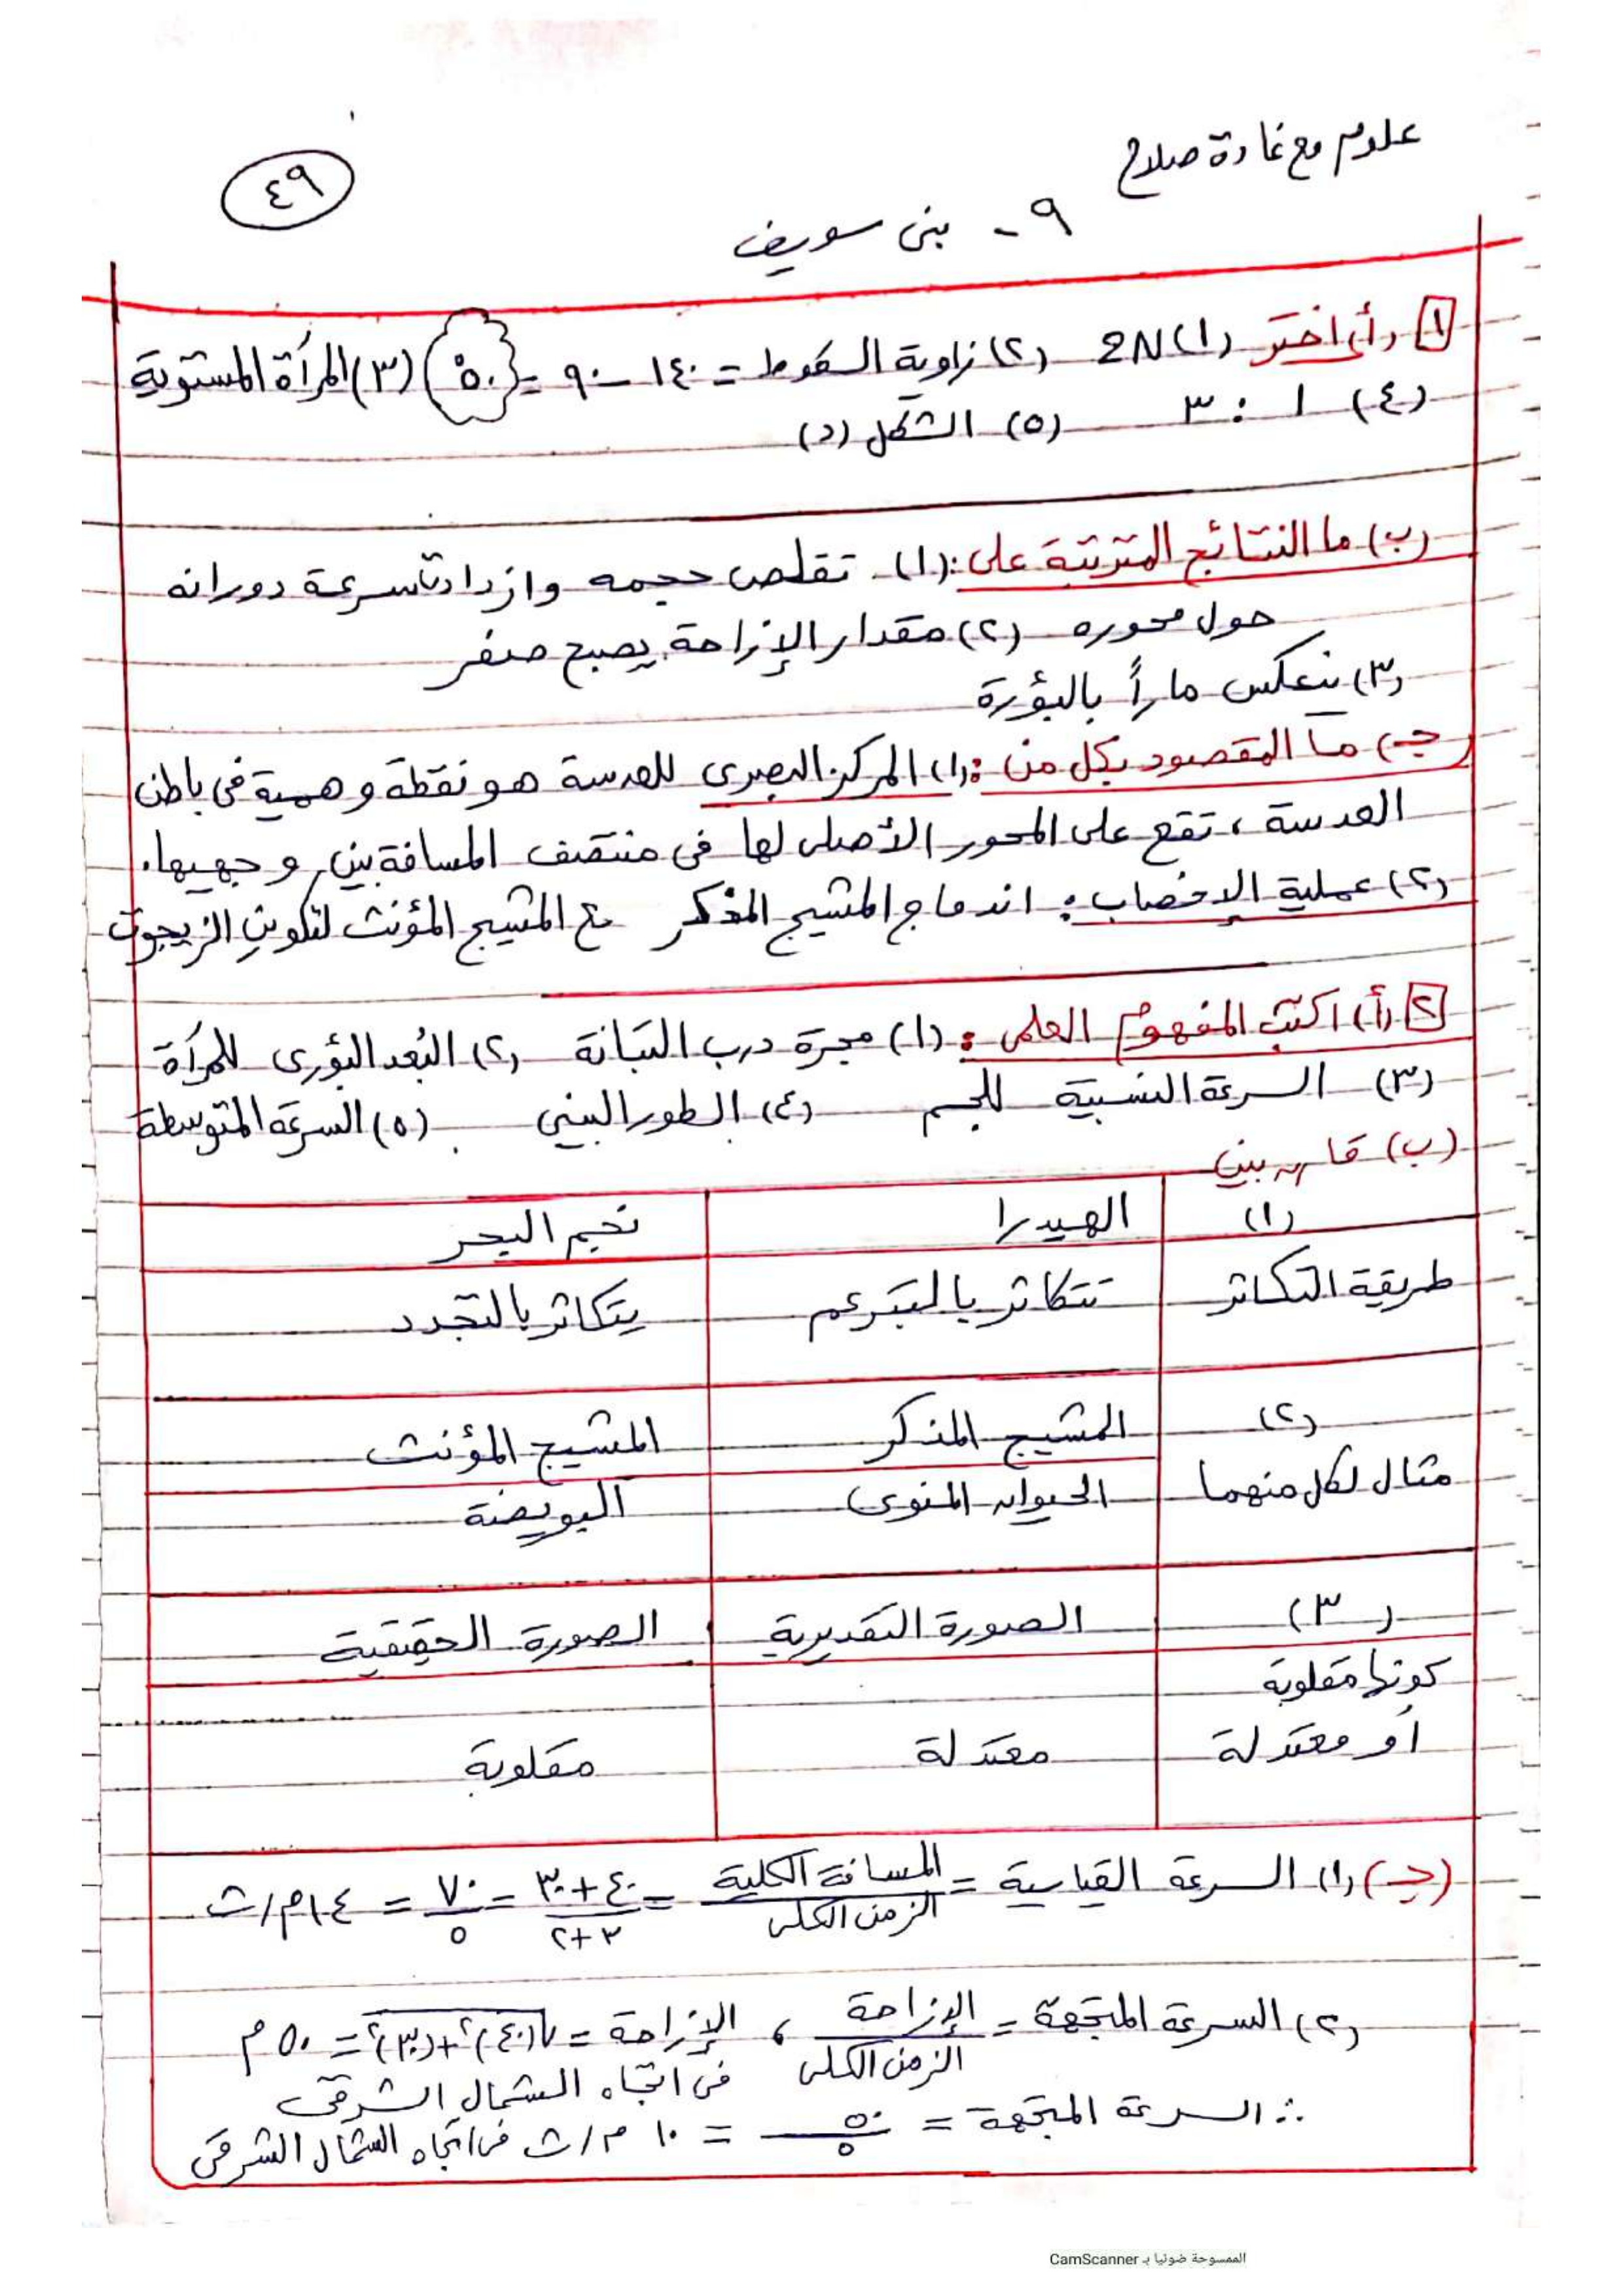 علوم مع غادة صلاح
٤٩
٩ - بنى سويف
١ (أ) اختر (١) 2N (٢) زاوية السقوط = ١٤٠ - ٩٠ = ٥٠° (٣) المرآة المستوية
(٤) ١ : ٣ (٥) الشكل (د)
(ب) ما النتائج المترتبة على: (١) تقلص حجمه وازدادت سرعة دورانه
حول محوره (٢) مقدار الإزاحة يصبح صفر
(٣) ينعكس ماراً بالبؤرة
(جـ) ما المقصود بكل من: (١) المركز البصرى للعدسة هو نقطة وهمية فى باطن
العدسة، تقع على المحور الأصلى لها فى منتصف المسافة بين وجهيها.
(٢) عملية الإخصاب: اندماج المشيج المذكر مع المشيج المؤنث لتكوين الزيجوت
٢ (أ) اكتب المفهوم العلمى: (١) مجرة درب التبانة (٢) البُعد البؤرى للمرآة
(٣) السرعة النسبية للجسم (٤) الطور البينى (٥) السرعة المتوسطة
(ب) قارن بين
(١) الهيدرا نجم البحر
طريقة التكاثر تتكاثر بالتبرعم يتكاثر بالتجدد
(٢) المشيج المذكر المشيج المؤنث
مثال لكل منهما الحيوان المنوى البويضة
(٣) الصورة التقديرية الصورة الحقيقية
كونها مقلوبة
أو معتدلة معتدلة مقلوبة
(جـ) (١) السرعة القياسية = المسافة الكلية / الزمن الكلى = ٤٠+٣٠ / ٣+٢ = ٧٠ / ٥ = ١٤ م/ث
(٢) السرعة المتجهة = الإزاحة / الزمن الكلى ، الإزاحة = √(٤٠)²+(٣٠)² = ٥٠ م
فى اتجاه الشمال الشرقى
∴ السرعة المتجهة = ٥٠ / ٥ = ١٠ م/ث فى اتجاه الشمال الشرقى
الممسوحة ضوئيا بـ CamScanner